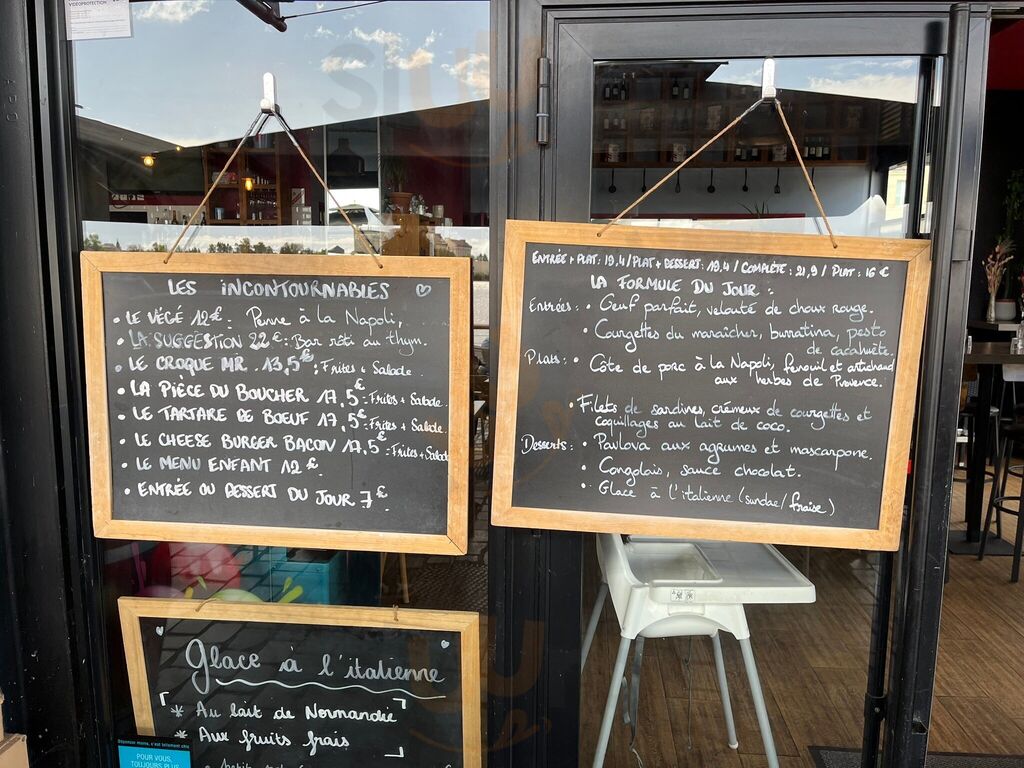 VIDÉOPROTECTION
LES INCONTOURNABLES
• LE VÉGÉ 12€ : Penne à la Napoli,
• LA SUGGESTION 22€ : Bar rôti au thym.
• LE CROQUE MR. 13,5€ : Frites + Salade.
• LA PIÈCE DU BOUCHER 17,5€ : Frites + Salade.
• LE TARTARE DE BOEUF 17,5€ : Frites + Salade.
• LE CHEESE BURGER BACON 17,5€ : Frites + Salade
• LE MENU ENFANT 12€.
• ENTRÉE OU DESSERT DU JOUR 7€.
ENTRÉE + PLAT : 19,4 / PLAT + DESSERT : 19,4 / COMPLÈTE : 21,9 / PLAT : 16 €
LA FORMULE DU JOUR :
Entrées : • Oeuf parfait, velouté de choux rouge.
• Courgettes du maraîcher, burratina, pesto
de cacahuète.
Plats : • Côte de porc à la Napoli, fenouil et artichaud
aux herbes de Provence.
• Filets de sardines, crémeux de courgettes et
coquillages au lait de coco.
Desserts : • Pavlova aux agrumes et mascarpone.
• Congolais, sauce chocolat.
• Glace à l'italienne (sundae/fraise)
Glace à l'italienne
* Au lait de Normandie
* Aux fruits frais
POUR VOUS,
TOUJOURS PLUS